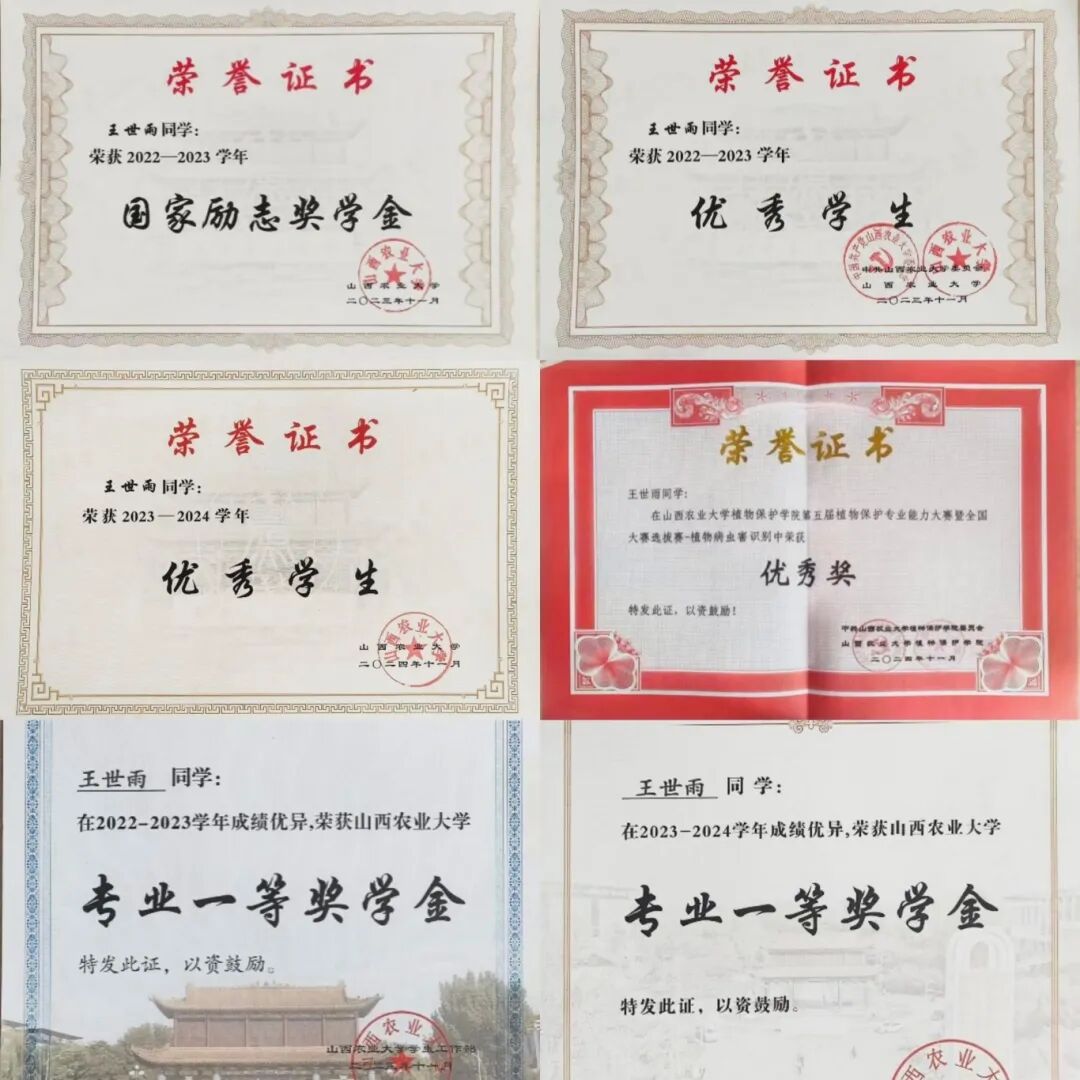 荣誉证书
王世雨同学：
荣获 2022—2023 学年
国家励志奖学金
山西农业大学
二〇二三年十一月
荣誉证书
王世雨同学：
荣获 2022—2023 学年
优秀学生
中共山西农业大学委员会
山西农业大学
二〇二三年十一月
荣誉证书
王世雨同学：
荣获 2023—2024 学年
优秀学生
山西农业大学
二〇二四年十一月
荣誉证书
王世雨同学：
在山西农业大学植物保护学院第五届植物保护专业能力大赛暨全国
大赛选拔赛-植物病虫害识别中荣获
优秀奖
特发此证，以资鼓励！
中共山西农业大学植物保护学院委员会
山西农业大学植物保护学院
二〇二四年十一月
王世雨 同学：
在2022-2023学年成绩优异,荣获山西农业大学
专业一等奖学金
特发此证，以资鼓励。
山西农业大学学生工作部
王世雨 同学：
在2023-2024学年成绩优异,荣获山西农业大学
专业一等奖学金
特发此证，以资鼓励。
山西农业大